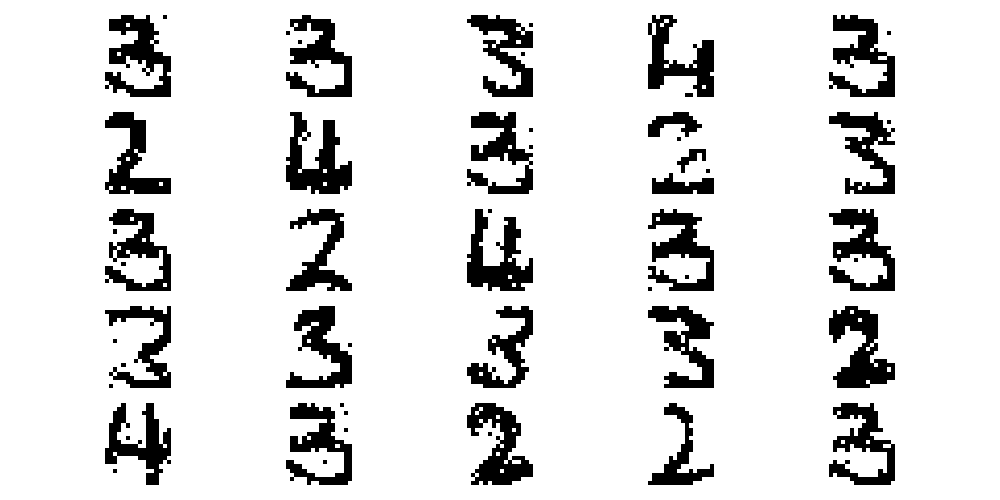 3 3 3 4 3
2 4 3 2 3
3 2 4 3 3
3 3 3 3 2
4 3 2 2 3